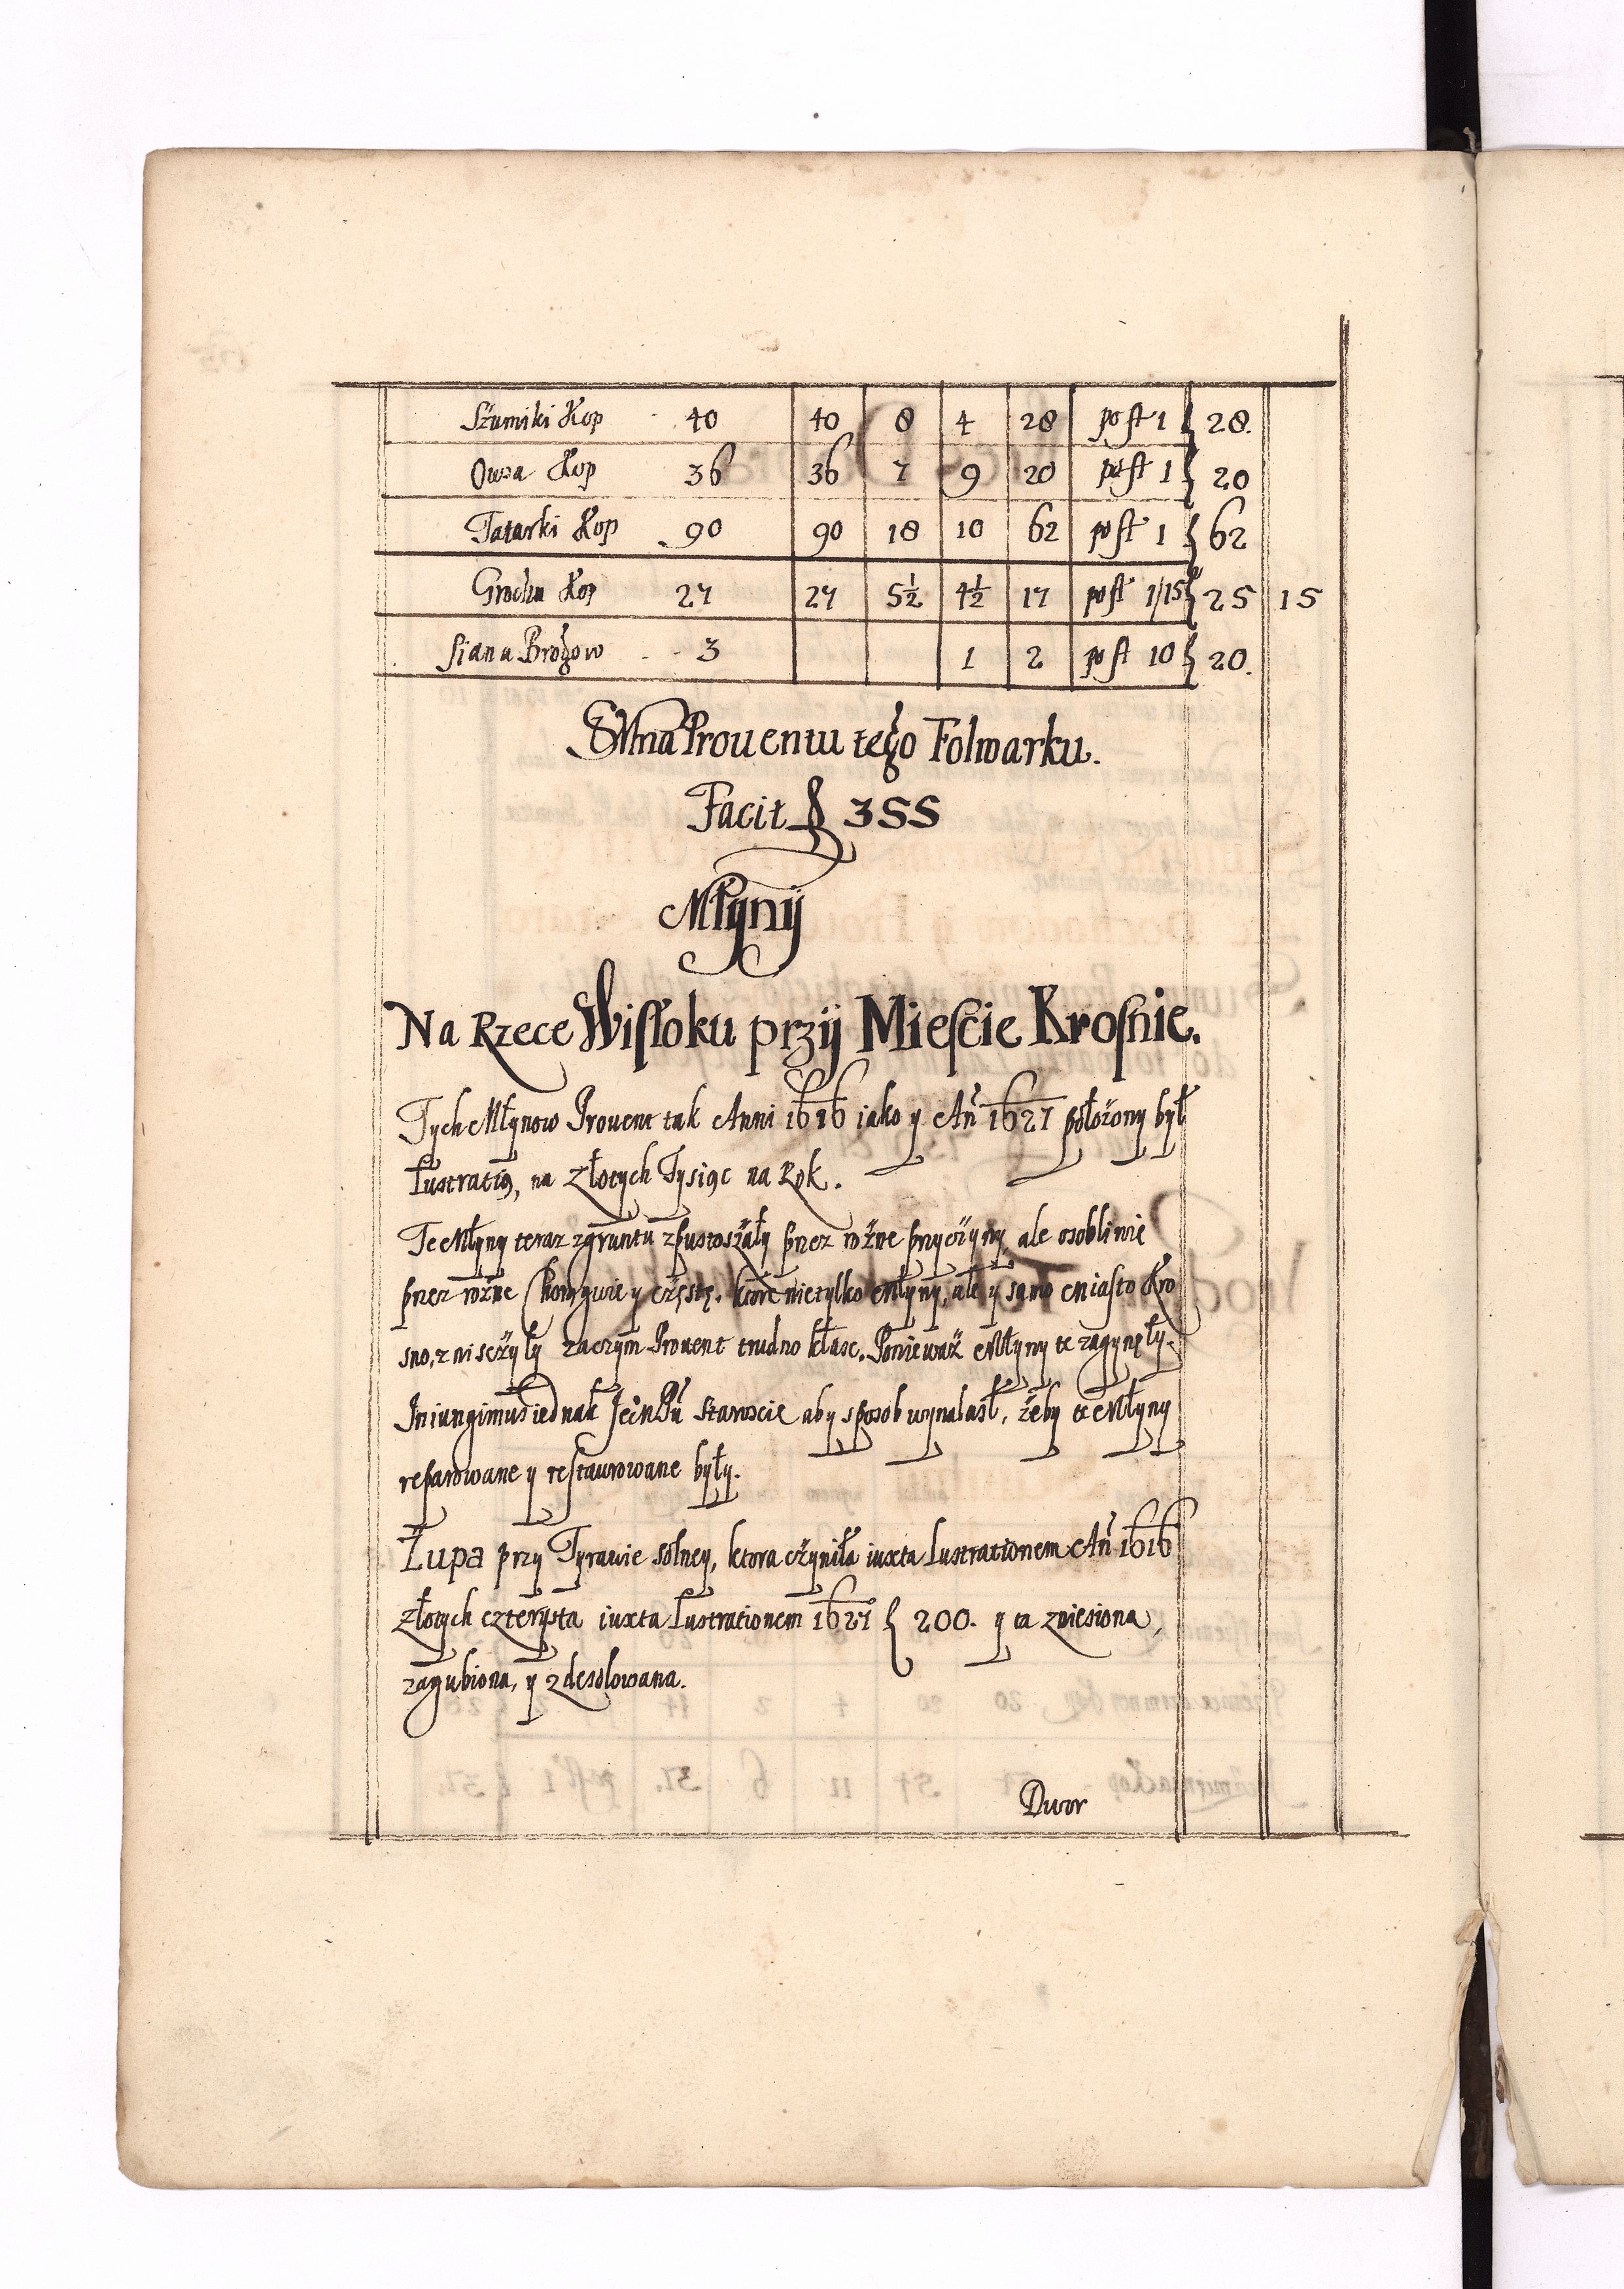 Szumiki Kop 40 40 8 4 28 post 1 28.
Owsa Kop 36 36 7 9 20 post 1 20
Tatarki Kop 90 90 18 10 62 post 1 62
Grochu Kop 27 27 5½ 4½ 17 post 1/15 25 15
Siana Brogow 3 1 2 post 10 20.
Suma Prouentu tego Folwarku.
Facit 355
Młyny
Na Rzece Wisłoku przy Mieście Krosnie.
Tych Młynow Prouent tak Anni 1616 iako y An 1627 położony był
Lustratią, na złotych Tysiąc na Rok.
Te Młyny teraz zgruntu zpustoszały przez rożne przyczyny, ale osobliwie
przez rożne y częste. ktore nietylko Młyny, ale y samo Miasto Kro
sno, zniszczyły zaczym Prouent trudno kłasc. Poniewaz Młyny te zagynęły.
Iniungimus iednak Staroscie aby sposob wynalasł, żeby te Młyny
reparowane y restaurowane były.
Żupa przy Tyrawie solney, ktora czyniła iuxta Lustrationem An 1616
złotych czterysta iuxta Lustrationem 1627 200. y ta zniesiona,
zagubiona, y zdesolowana.
Dwor